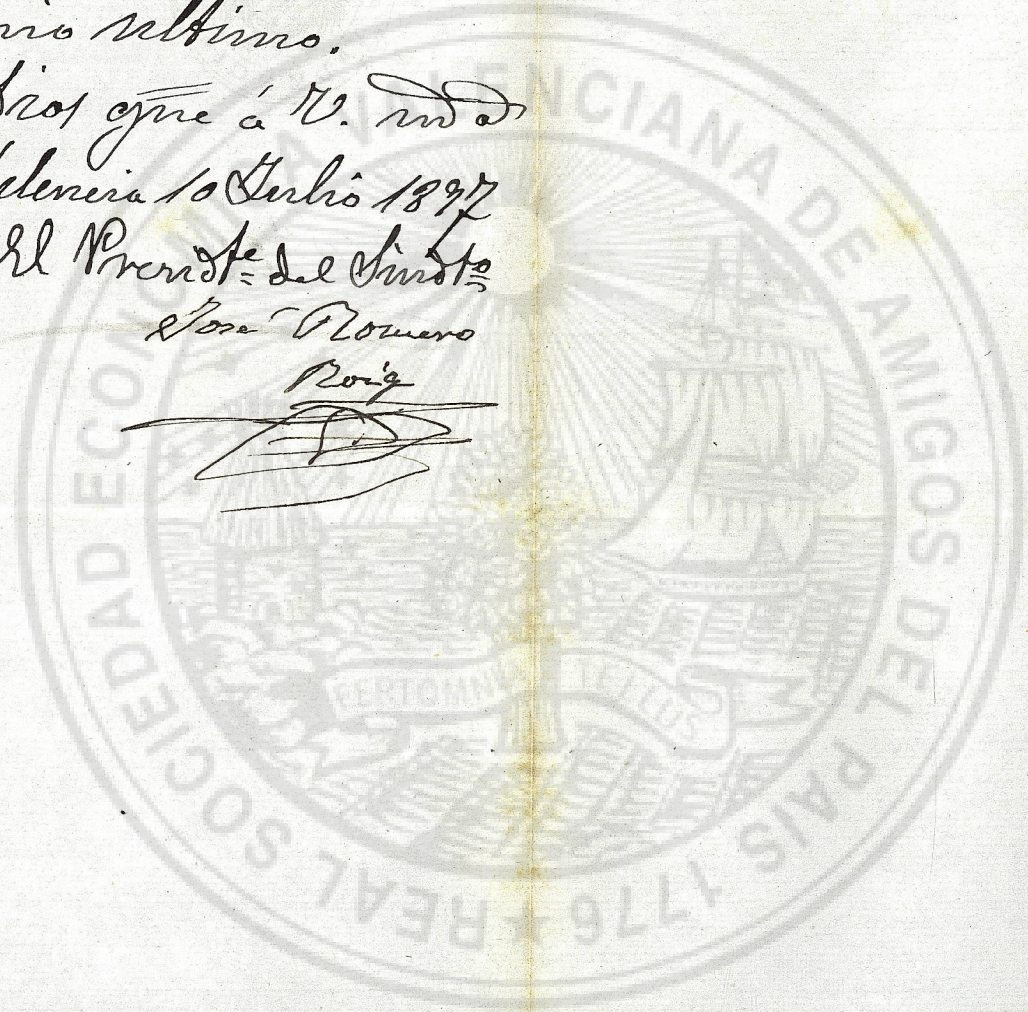 nio ultimo.
Dios que á V. m.s a.s
Valencia 10 Julio 1897
El Presidte. del Sindto.
José Romero
Roig
REAL SOCIEDAD ECONOMICA VALENCIANA DE AMIGOS DEL PAIS 1776 ★
FERT OMNIA TELLUS